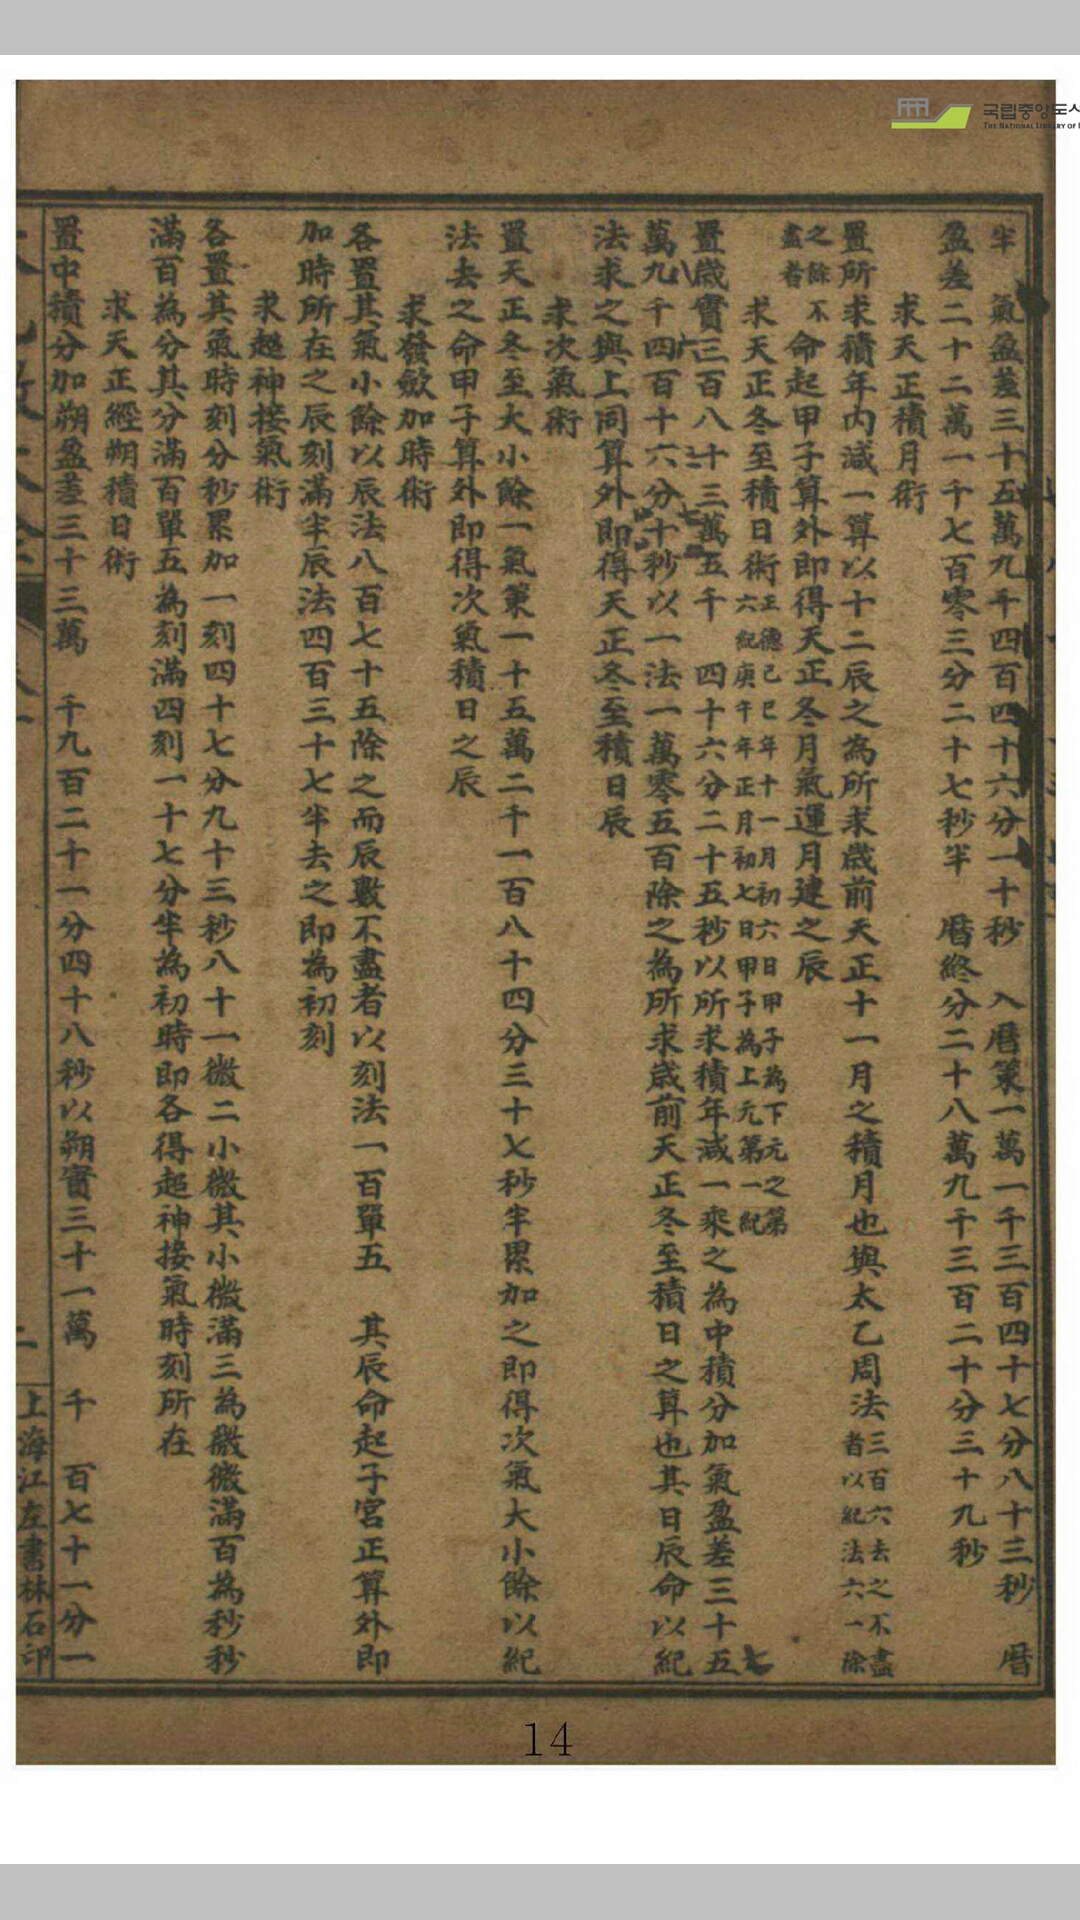 국립중앙도서
THE NATIONAL LIBRARY OF
半 氣盈差三十五萬九千四百四十六分一十秒 入曆策一萬一千三百四十七分八十三秒 曆
盈差二十二萬一千七百零三分二十七秒半 曆終分二十八萬九千三百二十分三十九秒
求天正積月術
置所求積年內減一算以十二辰之為所求歲前天正十一月之積月也與太乙周法三百六去之不盡者以紀法六一除
之餘不盡者命起甲子算外即得天正冬月氣運月建之辰
求天正冬至積日術正德己巳年十一月初六日甲子為下元之第六紀庚午年正月初七日甲子為上元第一紀
置歲實三百八十三萬五千 四十六分二十五秒以所求積年減一乘之為中積分加氣盈差三十五
萬九千四百十六分十秒以一法一萬零五百除之為所求歲前天正冬至積日之算也其日辰命以紀
法求之與上同算外即得天正冬至積日辰
求次氣術
置天正冬至大小餘一氣策一十五萬二千一百八十四分三十七秒半累加之即得次氣大小餘以紀
法去之命甲子算外即得次氣積日之辰
求發斂加時術
各置其氣小餘以辰法八百七十五除之而辰數不盡者以刻法一百單五 其辰命起子宮正算外即
加時所在之辰刻滿半辰法四百三十七半去之即為初刻
求超神接氣術
各置其氣時刻分秒累加一刻四十七分九十三秒八十一微二小微其小微滿三為微微滿百為秒秒
滿百為分其分滿百單五為刻滿四刻一十七分半為初時即各得超神接氣時刻所在
求天正經朔積日術
置中積分加朔盈差三十三萬 千九百二十一分四十八秒以朔實三十一萬 千 百七十一分一
二
上海江左書林石印
14